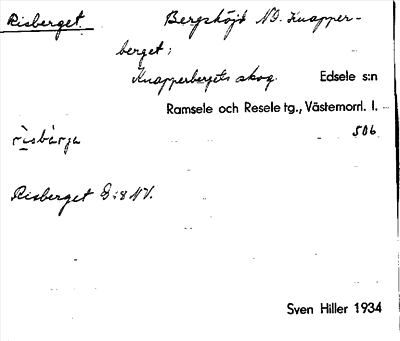 Risberget. Bergshöjd NO. Knapper-
berget;
Knapperbergets skog. Edsele s:n
Ramsele och Resele tg., Västernorrl. l.
rìsbárja 506
Risberget G:8 NV.
Sven Hiller 1934